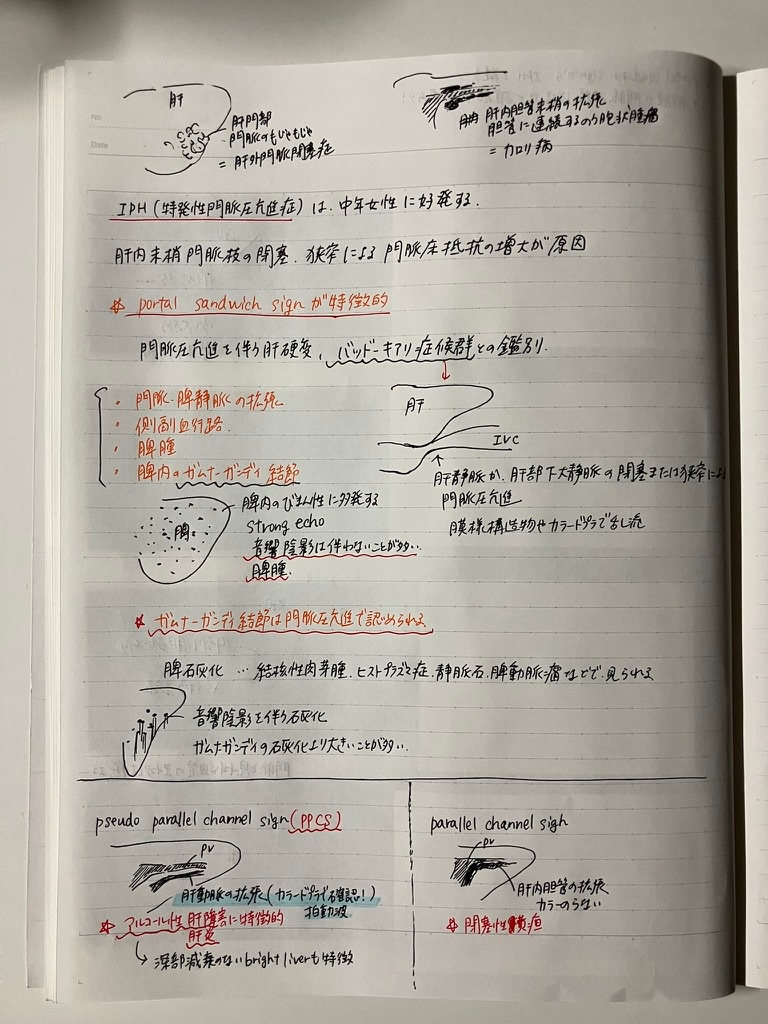 No
Date
肝
肝門部
門脈のもじゃもじゃ
= 肝外門脈閉塞症
肝内胆管末梢の拡張
胆管に連続するのう胞状腫瘤
= カロリ病
IPH(特発性門脈圧亢進症)は、中年女性に好発する.
肝内末梢門脈枝の閉塞、狭窄による門脈床抵抗の増大が原因
☆ portal sandwich signが特徴的
門脈圧亢進を伴う肝硬変、バッド-キアリ症候群との鑑別.
・門脈・脾静脈の拡張
・側副血行路.
・脾腫
・脾内のガムナ-ガンディ結節
肝
IVC
肝静脈か、肝部下大静脈の閉塞または狭窄により
門脈圧亢進
膜様構造物やカラードプラで舌し流
脾内のびまん性に多発する
strong echo
音響陰影は伴わないことが多い.
脾腫.
☆ ガムナ-ガンディ結節は門脈圧亢進で認められる
脾石灰化 … 結核性肉芽腫、ヒストプラズマ症、静脈石、脾動脈瘤などで見られる
音響陰影を伴う石灰化
ガムナガンディの石灰化より大きいことが多い.
pseudo parallel channel sign(PPCS)
PV
肝動脈の拡張(カラードプラで確認!)
拍動波
☆ アルコール性肝障害に特徴的
肝炎
↳ 深部減衰のないbright liverも特徴
parallel channel sigh
PV
肝内胆管の拡張
カラーのらない
☆ 閉塞性黄疸